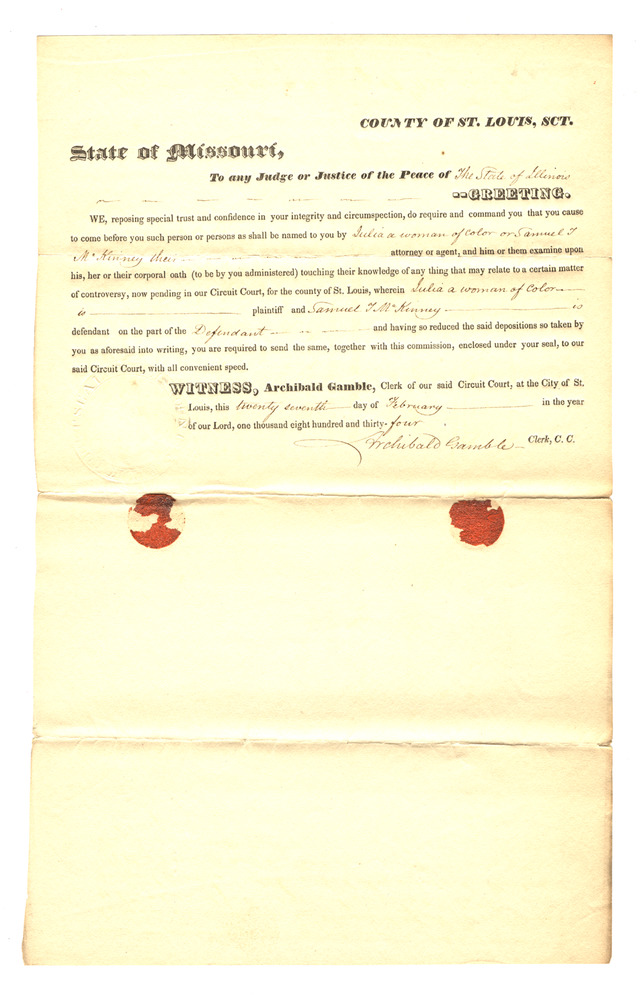 COUNTY OF ST. LOUIS, SCT.
State of Missouri,
To any Judge or Justice of the Peace of The State of Illinois
--GREETING.
WE, reposing special trust and confidence in your integrity and circumspection, do require and command you that you cause
to come before you such person or persons as shall be named to you by Julia a woman of color or Samuel T
Mc Kinney their attorney or agent, and him or them examine upon
his, her or their corporal oath (to be by you administered) touching their knowledge of any thing that may relate to a certain matter
of controversy, now pending in our Circuit Court, for the county of St. Louis, wherein Julia a woman of Color
is plaintiff and Samuel T McKinney is
defendant on the part of the Defendant and having so reduced the said depositions so taken by
you as aforesaid into writing, you are required to send the same, together with this commission, enclosed under your seal, to our
said Circuit Court, with all convenient speed.
WITNESS, Archibald Gamble, Clerk of our said Circuit Court, at the City of St.
Louis, this twenty seventh day of February in the year
of our Lord, one thousand eight hundred and thirty-four
Archibald Gamble Clerk, C. C.